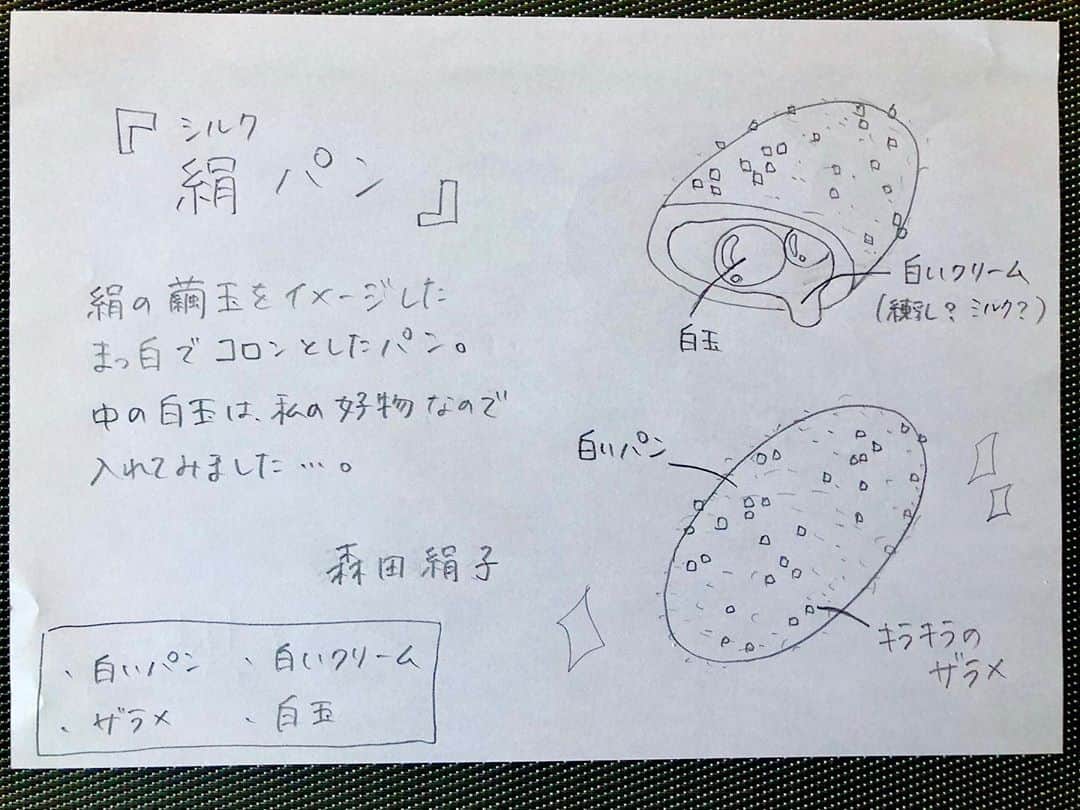 『シルク
絹パン』
絹の繭玉をイメージした
まっ白でコロンとしたパン。
中の白玉は、私の好物なので
入れてみました…。
森田絹子
・白いパン ・白いクリーム
・ザラメ ・白玉
白いクリーム
(練乳？ミルク？)
白玉
白いパン
キラキラの
ザラメ